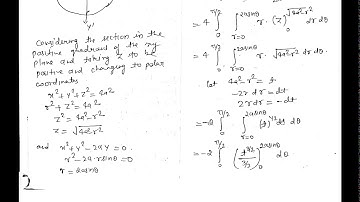 Y'
Considering the section in the
positive quadrant of the xy
plane and taking z to be
positive and changing to polar
coordinates
x² + y² + z² = 4a²
r² + z² = 4a²
z² = 4a² - r²
z = √4a² - r²
and x² + y² - 2ay = 0
r² - 2a·r sinθ = 0
r = 2a sinθ
= 4 ∫₀^π/2 ∫_{r=0}^{2a sinθ} r · (z)₀^√4a²-r² dr dθ
= 4 ∫₀^π/2 ∫_{r=0}^{2a sinθ} r · √4a²-r² dr dθ.
let 4a² - r² = t
-2r dr = dt
2r dr = -dt
= -2 ∫₀^π/2 ∫_{r=0}^{2a sinθ} (t)^1/2 dt dθ
= -2 ∫₀^π/2 (t^3/2 / 3/2)₀^{2a sinθ} dθ